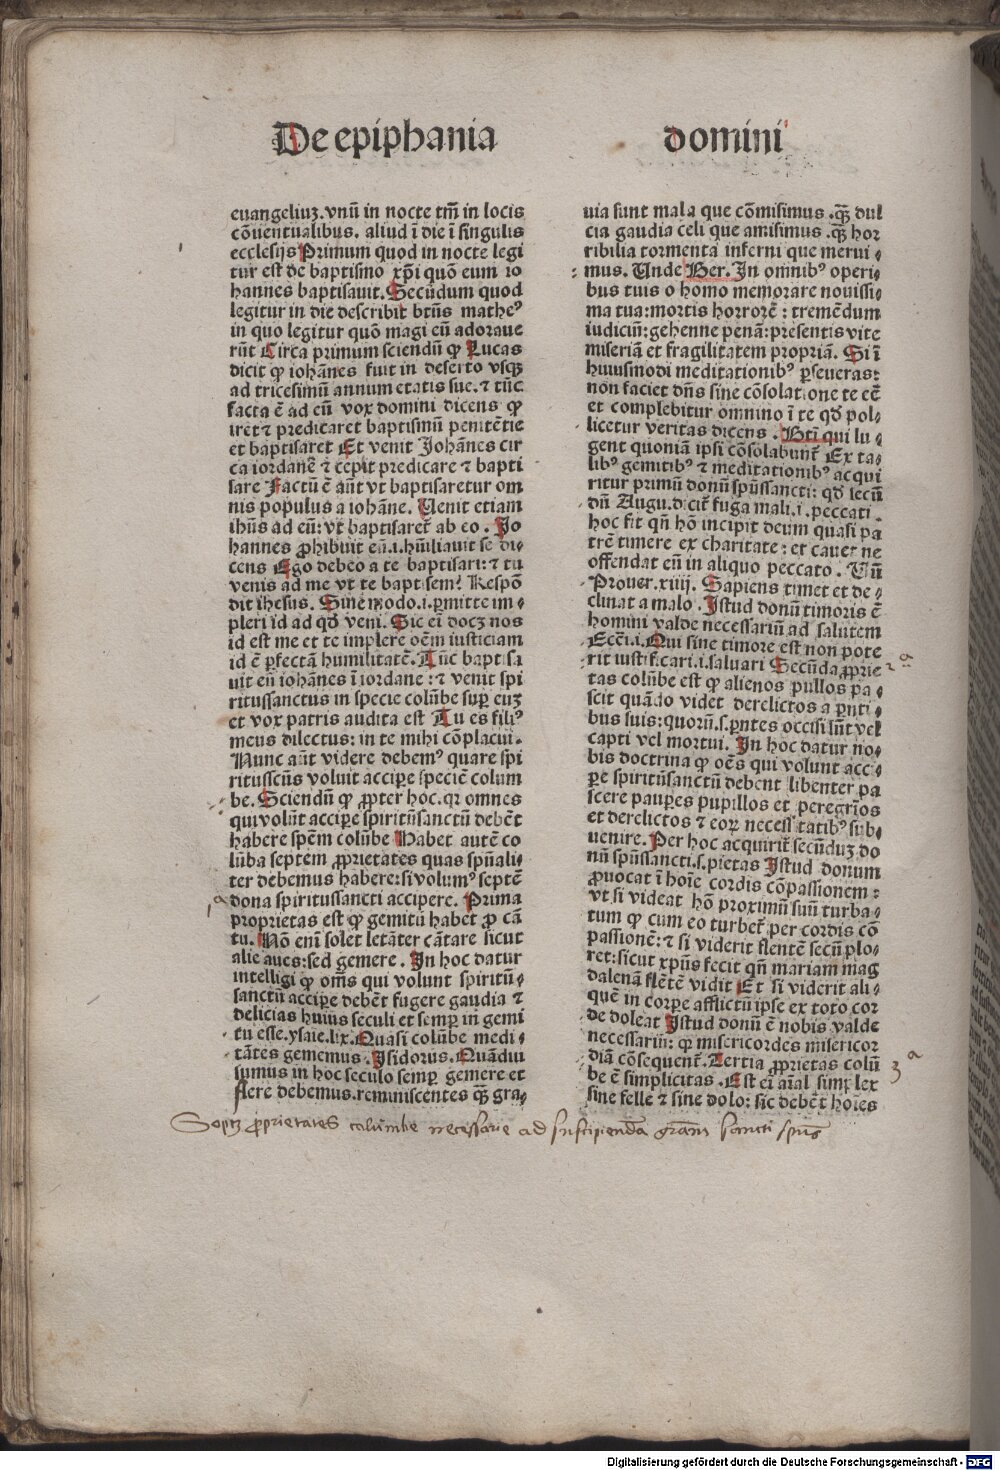 De epiphania domini
euangeliuꝫ. vnū in nocte tm̄ in locis
cōuentualibus. aliud ī die ī singulis
ecclesijs Primum quod in nocte legi
tur est de baptismo xp̄i quō eum io
hannes baptisauit. Secūdum quod
legitur in die describit btūs matheꝰ
in quo legitur quō magi eū adoraue
rūt Circa primum sciendū ꝙ Lucas
dicit ꝙ iohānes fuit in deserto vsqꝫ
ad tricesimū annum etatis sue. ⁊ tūc
facta ē ad eū vox domini dicens ꝙ
iret ⁊ predicaret baptismū penitētie
et baptisaret Et venit Johānes cir
ca iordanē ⁊ cepit predicare ⁊ bapti
sare Factū ē aūt vt baptisaretur om
nis populus a iohāne. Uenit etiam
ihūs ad eū: vt baptisaret̄ ab eo. Jo
hannes ꝓhibuit eū .i. hūiliauit se di⸗
cens Ego debeo a te baptisari: ⁊ tu
venis ad me vt te baptisem? Respō
dit ihesus. Sine modo .i. ꝑmitte im⸗
pleri id ad qđ veni. Sic eī docꝫ nos
id est me et te implere oēm iusticiam
id ē ꝑfectā humilitatē. Tūc baptisa
uit eū iohānes ī iordane: ⁊ venit spi
ritussanctus in specie colūbe suꝑ euꝫ
et vox patris audita est Tu es filiꝰ
meus dilectus: in te mihi cōplacui.
Nunc aūt videre debemꝰ quare spi
ritusscūs voluit acciꝑe speciē colum
be. Sciendū ꝙ ꝓpter hoc. qꝛ omnes
qui volūt acciꝑe spiritūsanctū debēt
habere spēm colūbe Habet autē co
lūba septem ꝓprietates quas spūali⸗
ter debemus habere: si volumꝰ septē
dona spiritussancti accipere. Prima
proprietas est ꝙ gemitū habet ꝓ cā
tu. Nō enī solet letāter cātare sicut
alie aues: sed gemere. In hoc datur
intelligi ꝙ om̄s qui volunt spiritū⸗
sanctū acciꝑe debēt fugere gaudia ⁊
delicias huius seculi et semꝑ in gemi
tu esse. ysaie. lix. Quasi colūbe medi⸗
tātes gememus. Jsidorus. Quādiu
sumus in hoc seculo semꝑ gemere et
flere debemus. reminiscentes qꝫ̄ gra⸗
uia sunt mala que cōmisimus. qꝫ̄ dul
cia gaudia celi que amisimus. qꝫ̄ hor
ribilia tormenta inferni que merui⸗
mus. Unde Ber. In omnibꝰ operi⸗
bus tuis o homo memorare nouissi⸗
ma tua: mortis horrorē: tremēdum
iudiciū: gehenne penā: presentis vite
miseriā et fragilitatem propriā. Si ī
huiusmodi meditationibꝰ ꝑseueras:
non faciet dn̄s sine cōsolatione te eē
et complebitur omnino ī te qđ pol⸗
licetur veritas dicens. Bti̅ qui lu⸗
gent quoniā ipsi cōsolabunt̄ Ex ta⸗
libꝰ gemitibꝰ ⁊ meditationibꝰ acqui
ritur primū donū spūssancti: qđ secū
dū Augu. dicit̄ fuga mali .i. peccati.
hoc fit qn̄ hō incipit deum quasi pa
trē timere ex charitate: et cauet ne
offendat eū in aliquo peccato. Uū
Prouer. xiiij. Sapiens timet et de⸗
clinat a malo. Istud donū timoris ē
homini valde necessariū ad salutem
Ecci. i. Qui sine timore est non pote
rit iustificari .i. saluari Secūda ꝓprie 2ᵃ
tas colūbe est ꝙ alienos pullos pa⸗
scit quādo videt derelictos a pn̄ti⸗
bus suis: quorū .s. pn̄tes occisi sūt vel
capti vel mortui. In hoc datur no⸗
bis doctrina ꝙ oēs qui volunt acci⸗
ꝑe spiritūsanctū debent libenter pa
scere pauꝑes pupillos et peregrīos
et derelictos ⁊ eoꝝ necessitatibꝰ sub⸗
uenire. Per hoc acquirit̄ secūduꝫ do
nū spūssancti .s. pietas Istud donum
ꝓuocat ī hoīe cordis cōpassionem:
vt si videat hō proximū suū turba⸗
tum ꝙ cum eo turbet̄ per cordis cō
passionē: ⁊ si viderit flentē secū plo⸗
ret: sicut xpūs fecit qn̄ mariam mag
dalenā flētē vidit Et si viderit ali⸗
quē in corꝑe afflictū ipse ex toto cor
de doleat Istud donū ē nobis valde
necessariū: qꝛ misericordes misericor
diā cōsequent̄. Tertia ꝓprietas colū 3ᵃ
be ē simplicitas. Est eī aīal simplex
sine felle ⁊ sine dolo: sic debēt hoīes
Septꝫ ꝓprietates columbe necessarie ad suscipiendā grām sancti spūs
Digitalisierung gefördert durch die Deutsche Forschungsgemeinschaft - DFG